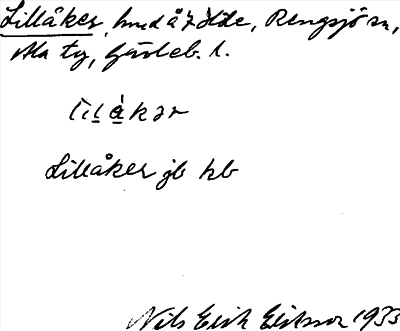 Lillåker, hmd å 7 Ölde, Rengsjö sn,
Ala tg, Gävleb. l.
lilåkər
Lillåker jb kb
Nils Erik Eliasson 1933